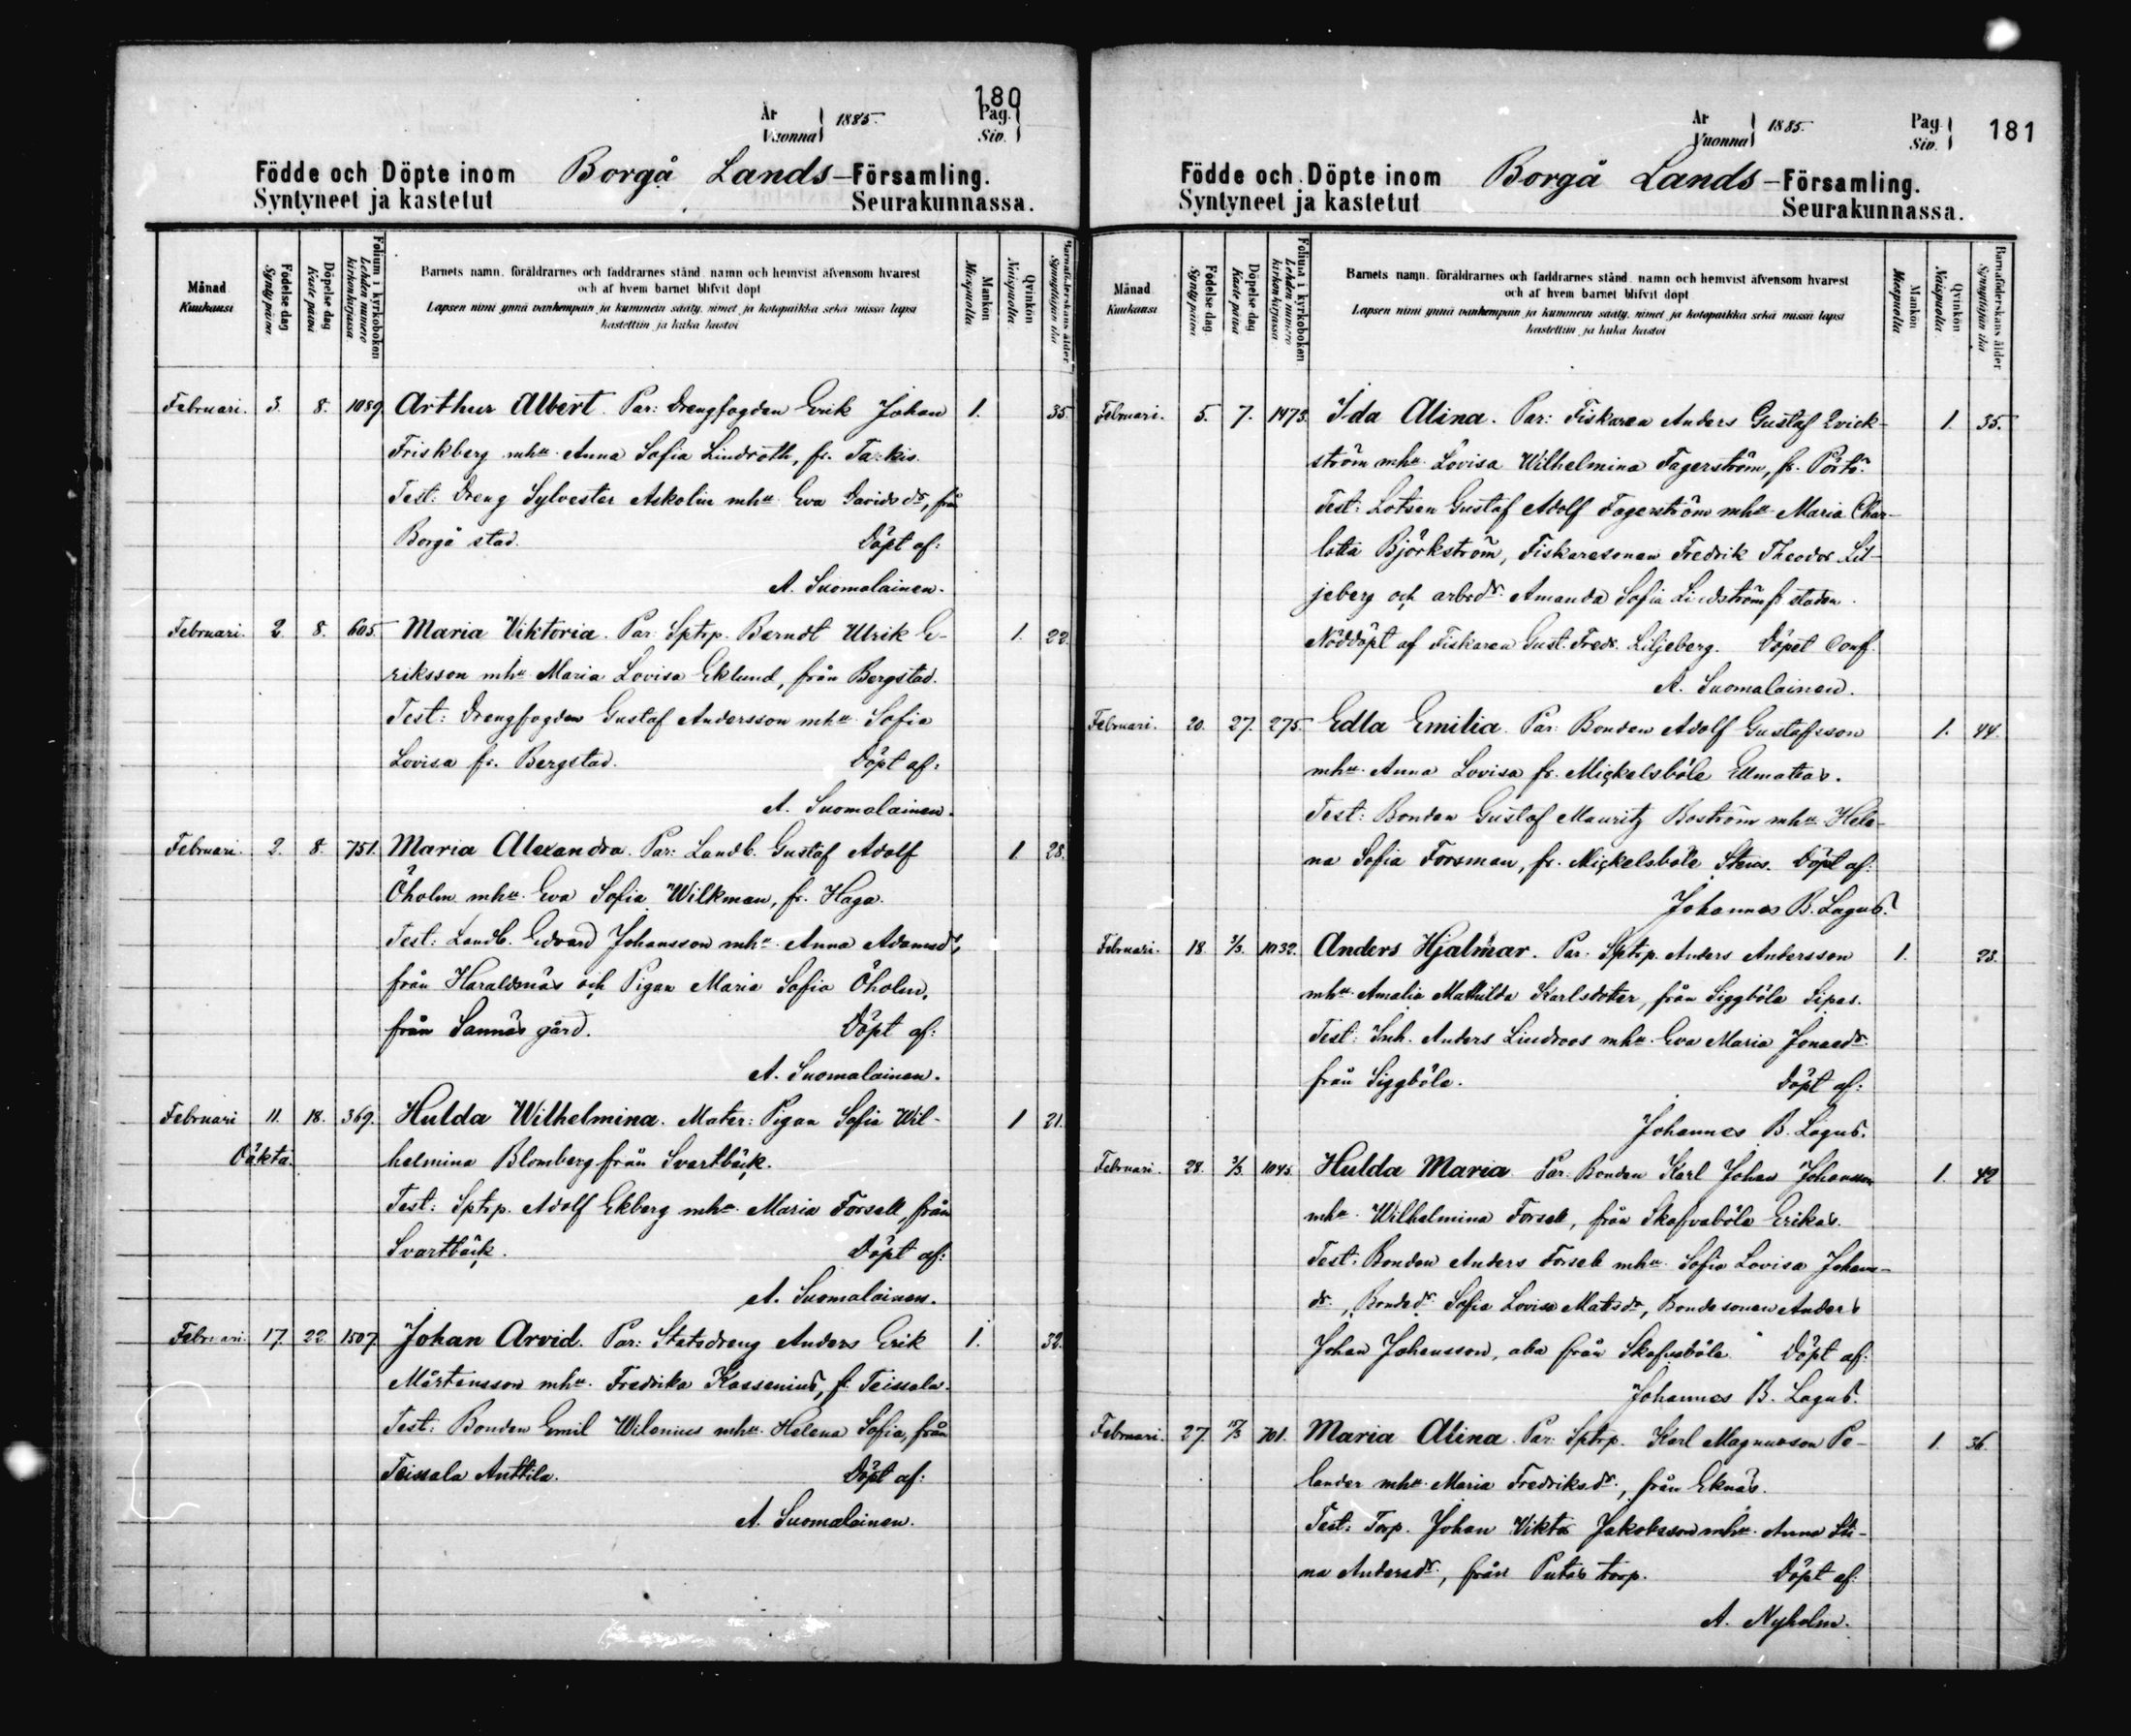 180
År
Vuonna
1885.
Pag.
Siv.
Födde och Döpte inom Borgå Lands-Församling.
Syntyneet ja kastetut Seurakunnassa.
Månad
Kuukausi
Födelse dag
Synty päivä
Döpelse dag
Kaste päivä
Folium i kyrkoboken
Lehden numero kirkonkirjassa
Barnets namn, föräldrarnes och faddrarnes stånd, namn och hemvist äfvensom hvarest
och af hvem barnet blifvit döpt
Lapsen nimi ynnä vanhempain ja kummein sääty, nimet ja kotopaikka sekä missä lapsi
kastettiin ja kuka kastoi
Mankön
Miespuolta
Qvinkön
Naispuolta
Barnaföderskans ålder
Synnyttäjän ikä
Februari. 3. 8. 1089 Arthur Albert. Par: Drengfogden Erik Johan 1. 35.
Friskberg mhu Anna Sofia Lindroth, fr. Tarkis.
Test: Dreng Sylvester Askolin mhu Eva Davidsdr, från
Borgå stad. Döpt af:
A. Suomalainen.
Februari. 2. 8. 605. Maria Viktoria. Par: Sptrp. Berndt Ulrik E- 1. 22.
riksson mhu Maria Lovisa Eklund, från Bergstad.
Test: Drengfogden Gustaf Andersson mhu Sofia
Lovisa fr. Bergstad. Döpt af:
A. Suomalainen.
Februari. 2. 8. 751. Maria Alexandra. Par: Landb. Gustaf Adolf 1. 28.
Öholm mhu Eva Sofia Wilkman, fr. Haga.
Test: Landb. Edvard Johansson mhu Anna Adamsdr,
från Haraldsnäs och Pigan Maria Sofia Öholm,
från Sannäs gård. Döpt af:
A. Suomalainen.
Februari 11. 18. 369. Hulda Wilhelmina. Mater: Pigan Sofia Wil- 1 21.
Oäkta. helmina Blomberg från Svartbäck.
Test: Sptrp. Adolf Ekberg mhu Maria Forsell, från
Svartbäck. Döpt af:
A. Suomalainen.
Februari. 17. 22 1507. Johan Arvid. Par: Statsdreng Anders Erik 1. 32.
Mårtensson mhu Fredrika Kassenius, fr. Teissala.
Test: Bonden Emil Wilenius mhu Helena Sofia, från
Teissala Anttila. Döpt af:
A. Suomalainen.
År
Vuonna
1885.
Pag.
Siv.
181
Födde och Döpte inom Borgå Lands-Församling.
Syntyneet ja kastetut Seurakunnassa.
Månad
Kuukausi
Födelse dag
Synty päivä
Döpelse dag
Kaste päivä
Folium i kyrkoboken
Lehden numero kirkonkirjassa
Barnets namn, föräldrarnes och faddrarnes stånd, namn och hemvist äfvensom hvarest
och af hvem barnet blifvit döpt
Lapsen nimi ynnä vanhempain ja kummein sääty, nimet ja kotopaikka sekä missä lapsi
kastettiin ja kuka kastoi
Mankön
Miespuolta
Qvinkön
Naispuolta
Barnaföderskans ålder
Synnyttäjän ikä
Februari. 5. 7. 1473. Ida Alina. Par: Fiskaren Anders Gustaf Qvick- 1. 35.
ström mhu Lovisa Wilhelmina Fagerström, fr. Pörtö.
Test: Lotsen Gustaf Adolf Fagerström mhu Maria Char-
lotta Björkström, Fiskaresonen Fredrik Theodor Lil-
jeberg och arbrdr Amanda Sofia Lindström fr staden.
Nöddöpt af Fiskaren Gust. Fredr. Liljeberg. Döpet Conf.
A. Suomalainen.
Februari. 20. 27. 275. Edla Emilia. Par: Bonden Adolf Gustafsson 1. 44.
mhu Anna Lovisa fr. Mickelsböle
Test: Bonden Gustaf Mauritz Boström mhu Hele-
na Sofia Forsman, fr. Mickelsböle Stens. Döpt af:
Johannes B. Lagus.
Februari. 18. 3/3. 1032. Anders Hjalmar. Par: Sptrp. Anders Andersson 1. 23.
mhu Amalia Mathilda Karlsdoter, från Siggböle Sipas.
Test: Inh. Anders Lindroos mhu Eva Maria Jonasdr
från Siggböle. Döpt af:
Johannes B. Lagus.
Februari. 28. 3/3. 1045. Hulda Maria Par: Bonden Karl Johan Johansson 1. 42
mhu Wilhelmina Forsell, från Skafvaböle Erikas.
Test: Bonden Anders Forsell mhu Sofia Lovisa Johans-
dr., Bondedr Sofia Lovisa Matsdr, Bondesonen Anders
Johan Johansson, alla från Skafvaböle. Döpt af:
Johannes B. Lagus.
Februari. 27. 701. Maria Alina. Par: Sptrp. Karl Magnusson Po- 1. 36.
lander mhu Maria Fredriksdr, från Eknäs.
Test: Torp. Johan Viktor Jakobsson mhu Anna Sti-
na Andersdr, från Putas torp. Döpt af:
A. Nyholm.